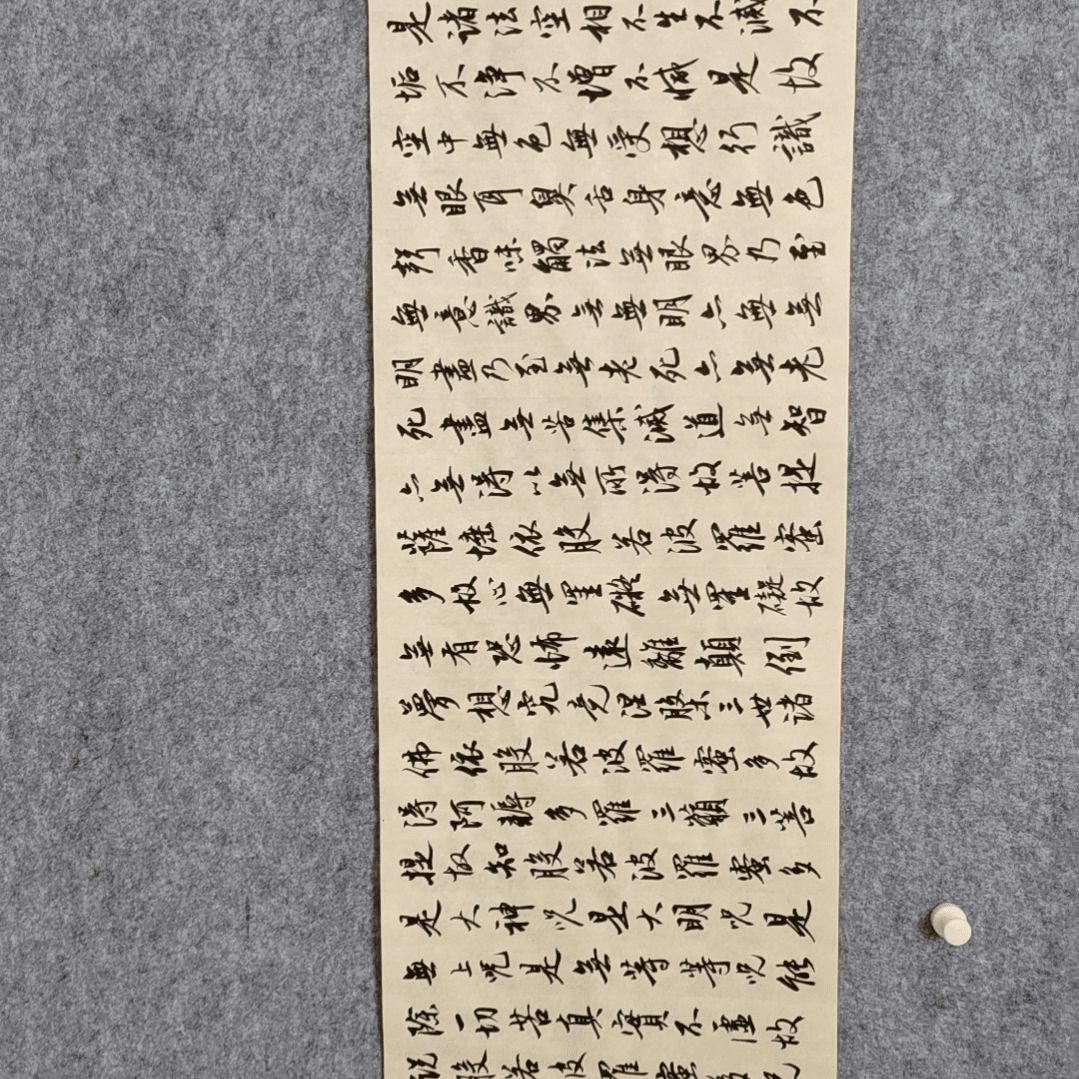 是諸法空相不生不滅不
垢不淨不增不減是故
空中無色無受想行識
無眼耳鼻舌身意無色
聲香味觸法無眼界乃至
無意識界無無明亦無無
明盡乃至無老死亦無老
死盡無苦集滅道無智
亦無得以無所得故菩提
薩埵依般若波羅蜜
多故心無罣礙無罣礙故
無有恐怖遠離顛倒
夢想究竟涅槃三世諸
佛依般若波羅蜜多故
得阿耨多羅三藐三菩
提故知般若波羅蜜多
是大神咒是大明咒是
無上咒是無等等咒能
除一切苦真實不虛故
説般若波羅蜜多咒